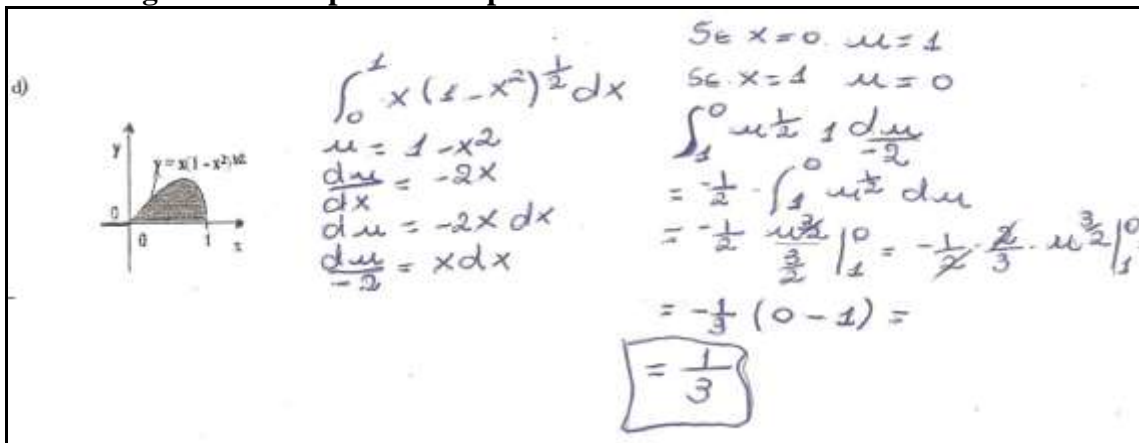 d)
y
y = x(1 - x²)^1/2
0
0 1 x
∫₀¹ x (1 - x²)^½ dx
u = 1 - x²
du/dx = -2x
du = -2x dx
du/-2 = x dx
Se x = 0. u = 1
Se. x = 1 u = 0
∫₁⁰ u^½ 1 du/-2
= -½ · ∫₁⁰ u^½ du
= -½ u^(3/2)/(3/2) |₁⁰ = -1/2 · 2/3 · u^(3/2) |₁⁰
= -⅓ (0 - 1) =
= 1/3